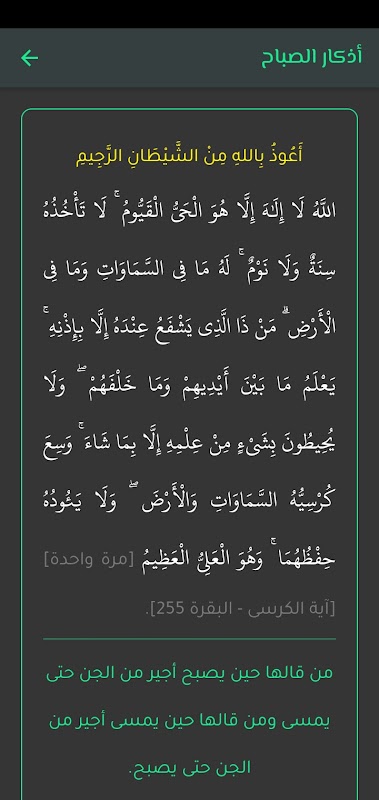 أذكار الصباح
أَعُوذُ بِاللهِ مِنْ الشَّيْطَانِ الرَّجِيمِ
اللَّهُ لَا إِلَـٰهَ إِلَّا هُوَ الْحَيُّ الْقَيُّومُ ۚ لَا تَأْخُذُهُ
سِنَةٌ وَلَا نَوْمٌ ۚ لَهُ مَا فِي السَّمَاوَاتِ وَمَا فِي
الْأَرْضِ ۗ مَنْ ذَا الَّذِي يَشْفَعُ عِنْدَهُ إِلَّا بِإِذْنِهِ ۚ
يَعْلَمُ مَا بَيْنَ أَيْدِيهِمْ وَمَا خَلْفَهُمْ ۖ وَلَا
يُحِيطُونَ بِشَيْءٍ مِنْ عِلْمِهِ إِلَّا بِمَا شَاءَ ۚ وَسِعَ
كُرْسِيُّهُ السَّمَاوَاتِ وَالْأَرْضَ ۖ وَلَا يَئُودُهُ
حِفْظُهُمَا ۚ وَهُوَ الْعَلِيُّ الْعَظِيمُ [مرة واحدة]
[آية الكرسى - البقرة 255].
من قالها حين يصبح أجير من الجن حتى
يمسى ومن قالها حين يمسى أجير من
الجن حتى يصبح.